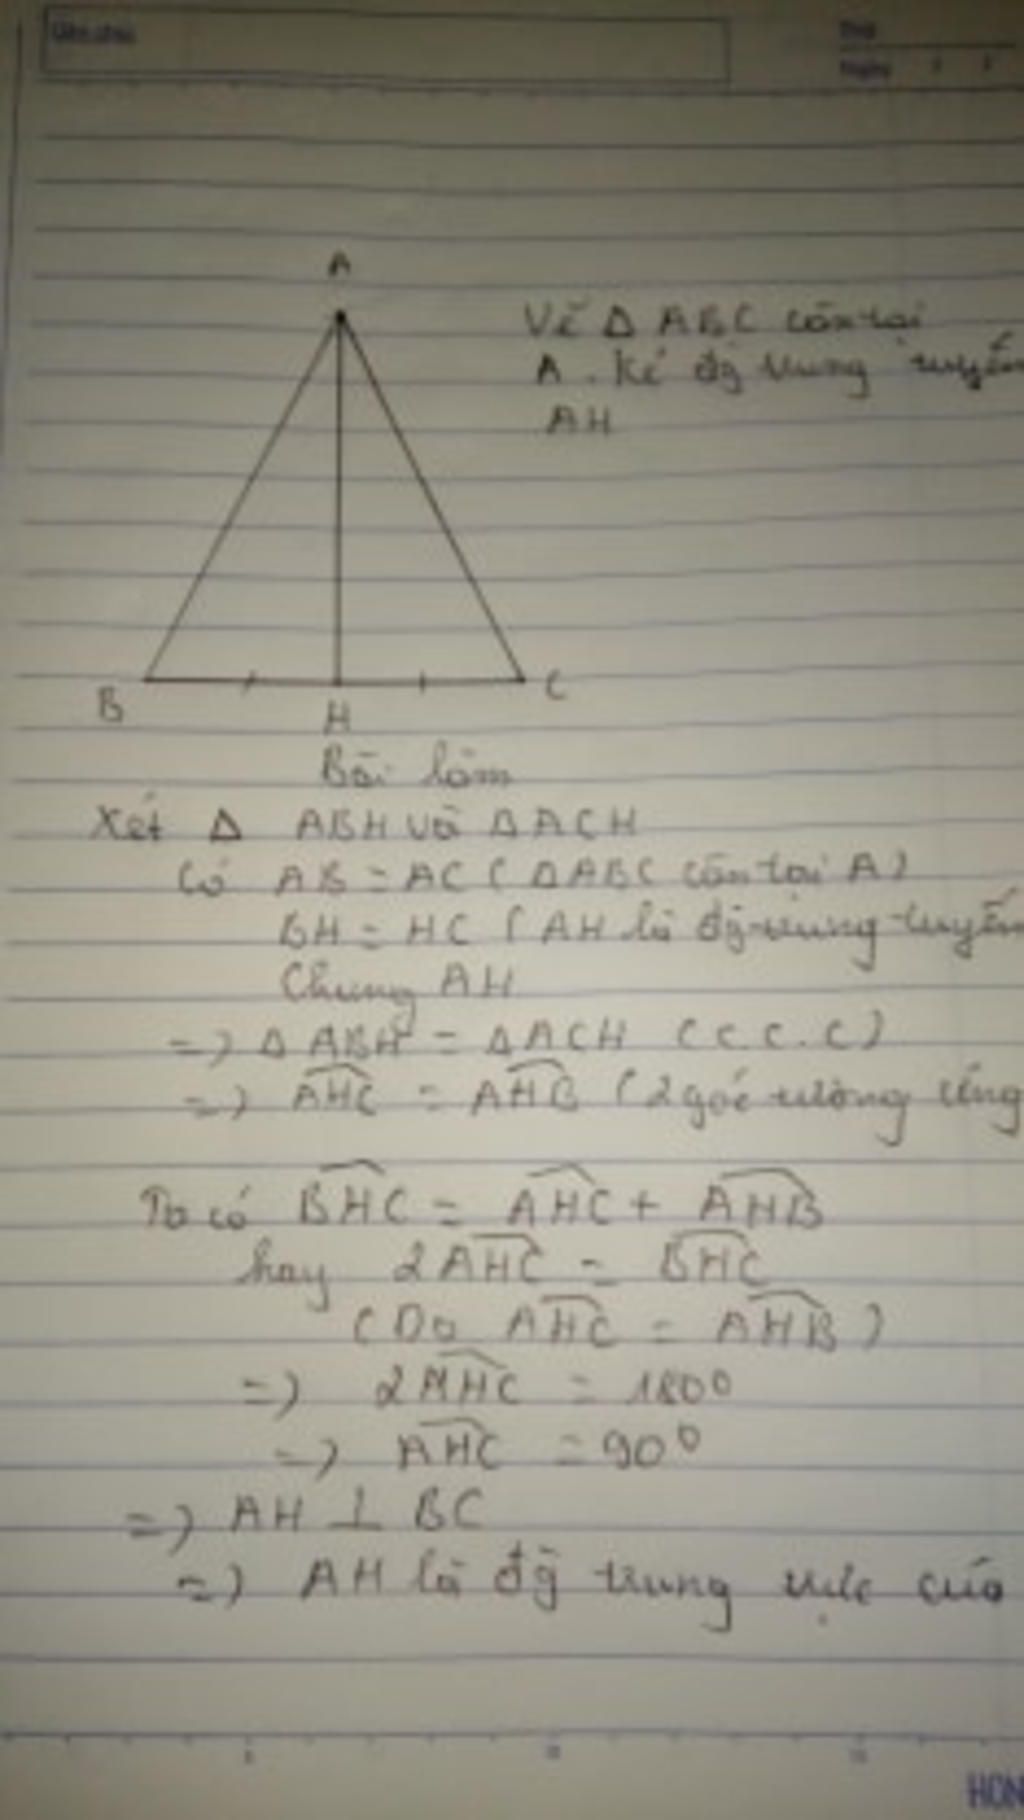 Thứ
Ngày
A
Vẽ Δ ABC cân tại
A. Kẻ đg trung tuyến
AH
B
H
C
Bài làm
Xét Δ ABH và ΔACH
Có AB = AC (ΔABC cân tại A)
BH = HC (AH là đg trung tuyến
Chung AH
=> ΔABH = ΔACH (c.c.c)
=> AHC = AHB (2 góc tương ứng
Ta có BHC = AHC + AHB
hay 2AHC = BHC
(Do AHC = AHB)
=> 2AHC = 180°
=> AHC = 90°
=> AH ⊥ BC
=> AH là đg trung trực của
5
10
15
HON